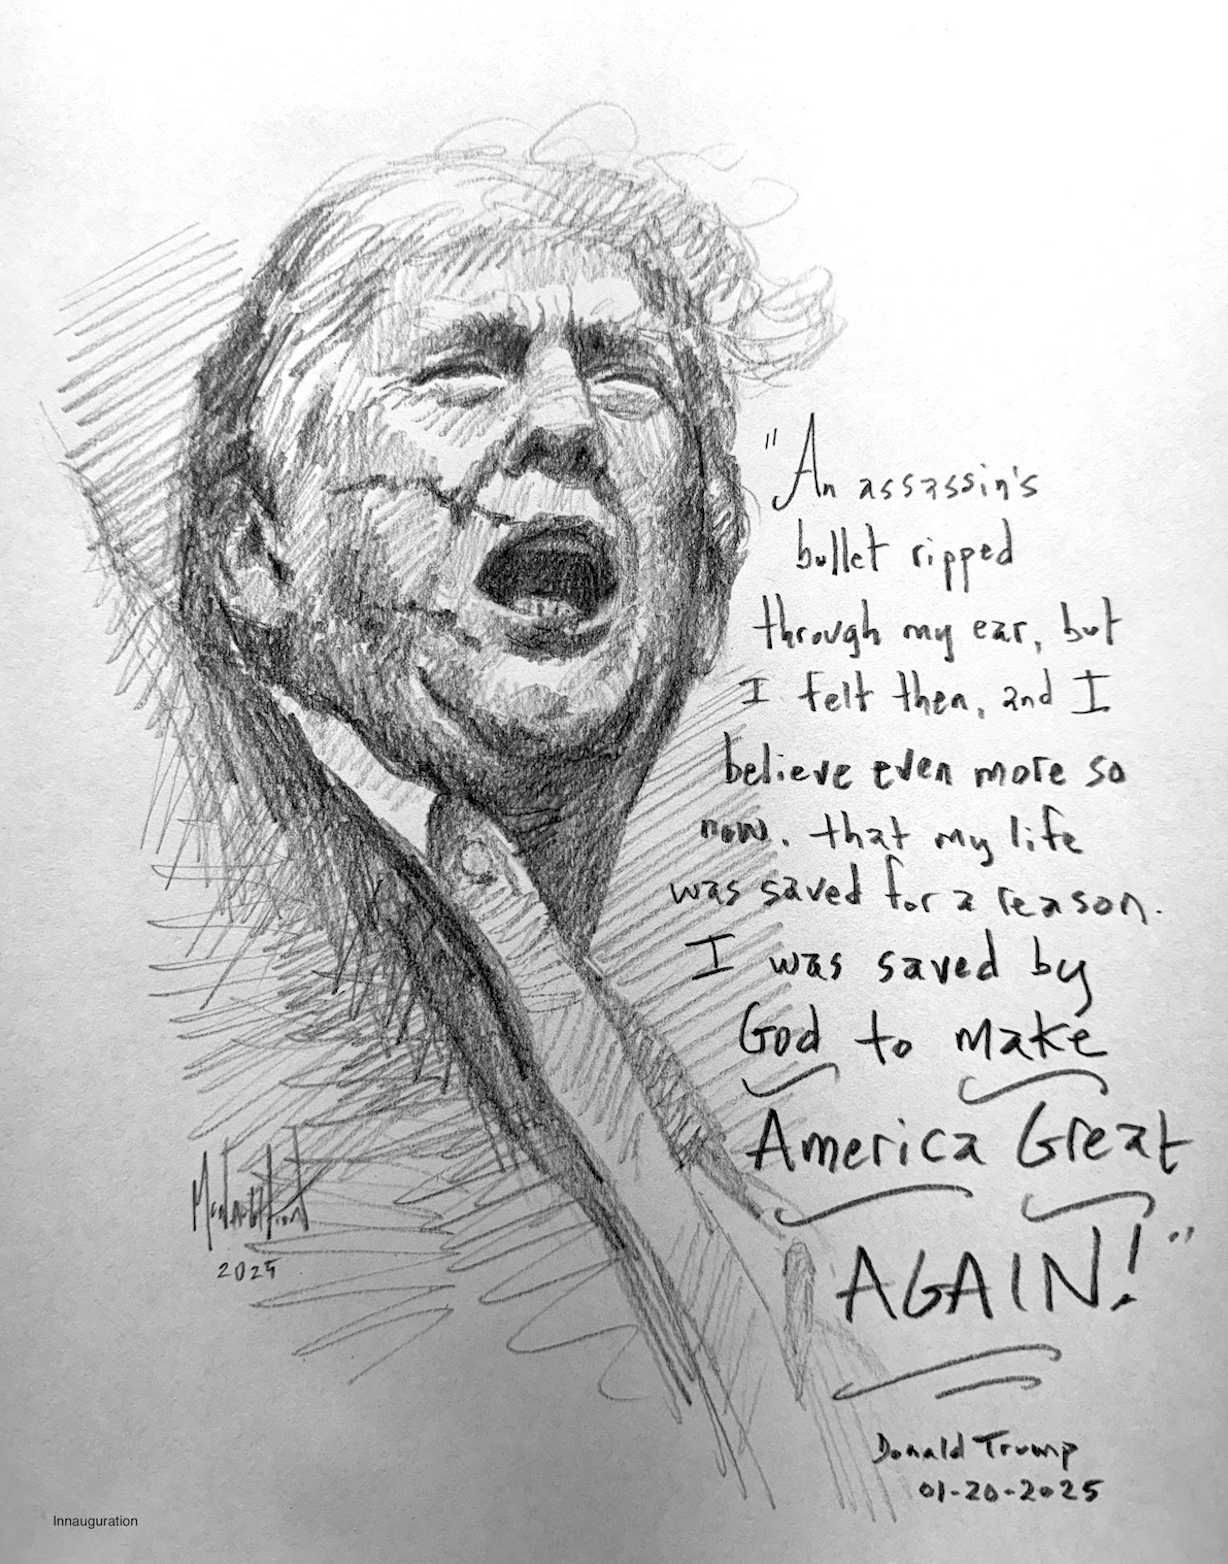 "An assassin's
bullet ripped
through my ear, but
I felt then, and I
believe even more so
now, that my life
was saved for a reason.
I was saved by
God to make
America Great
AGAIN!"
Donald Trump
01-20-2025
2025
Innauguration